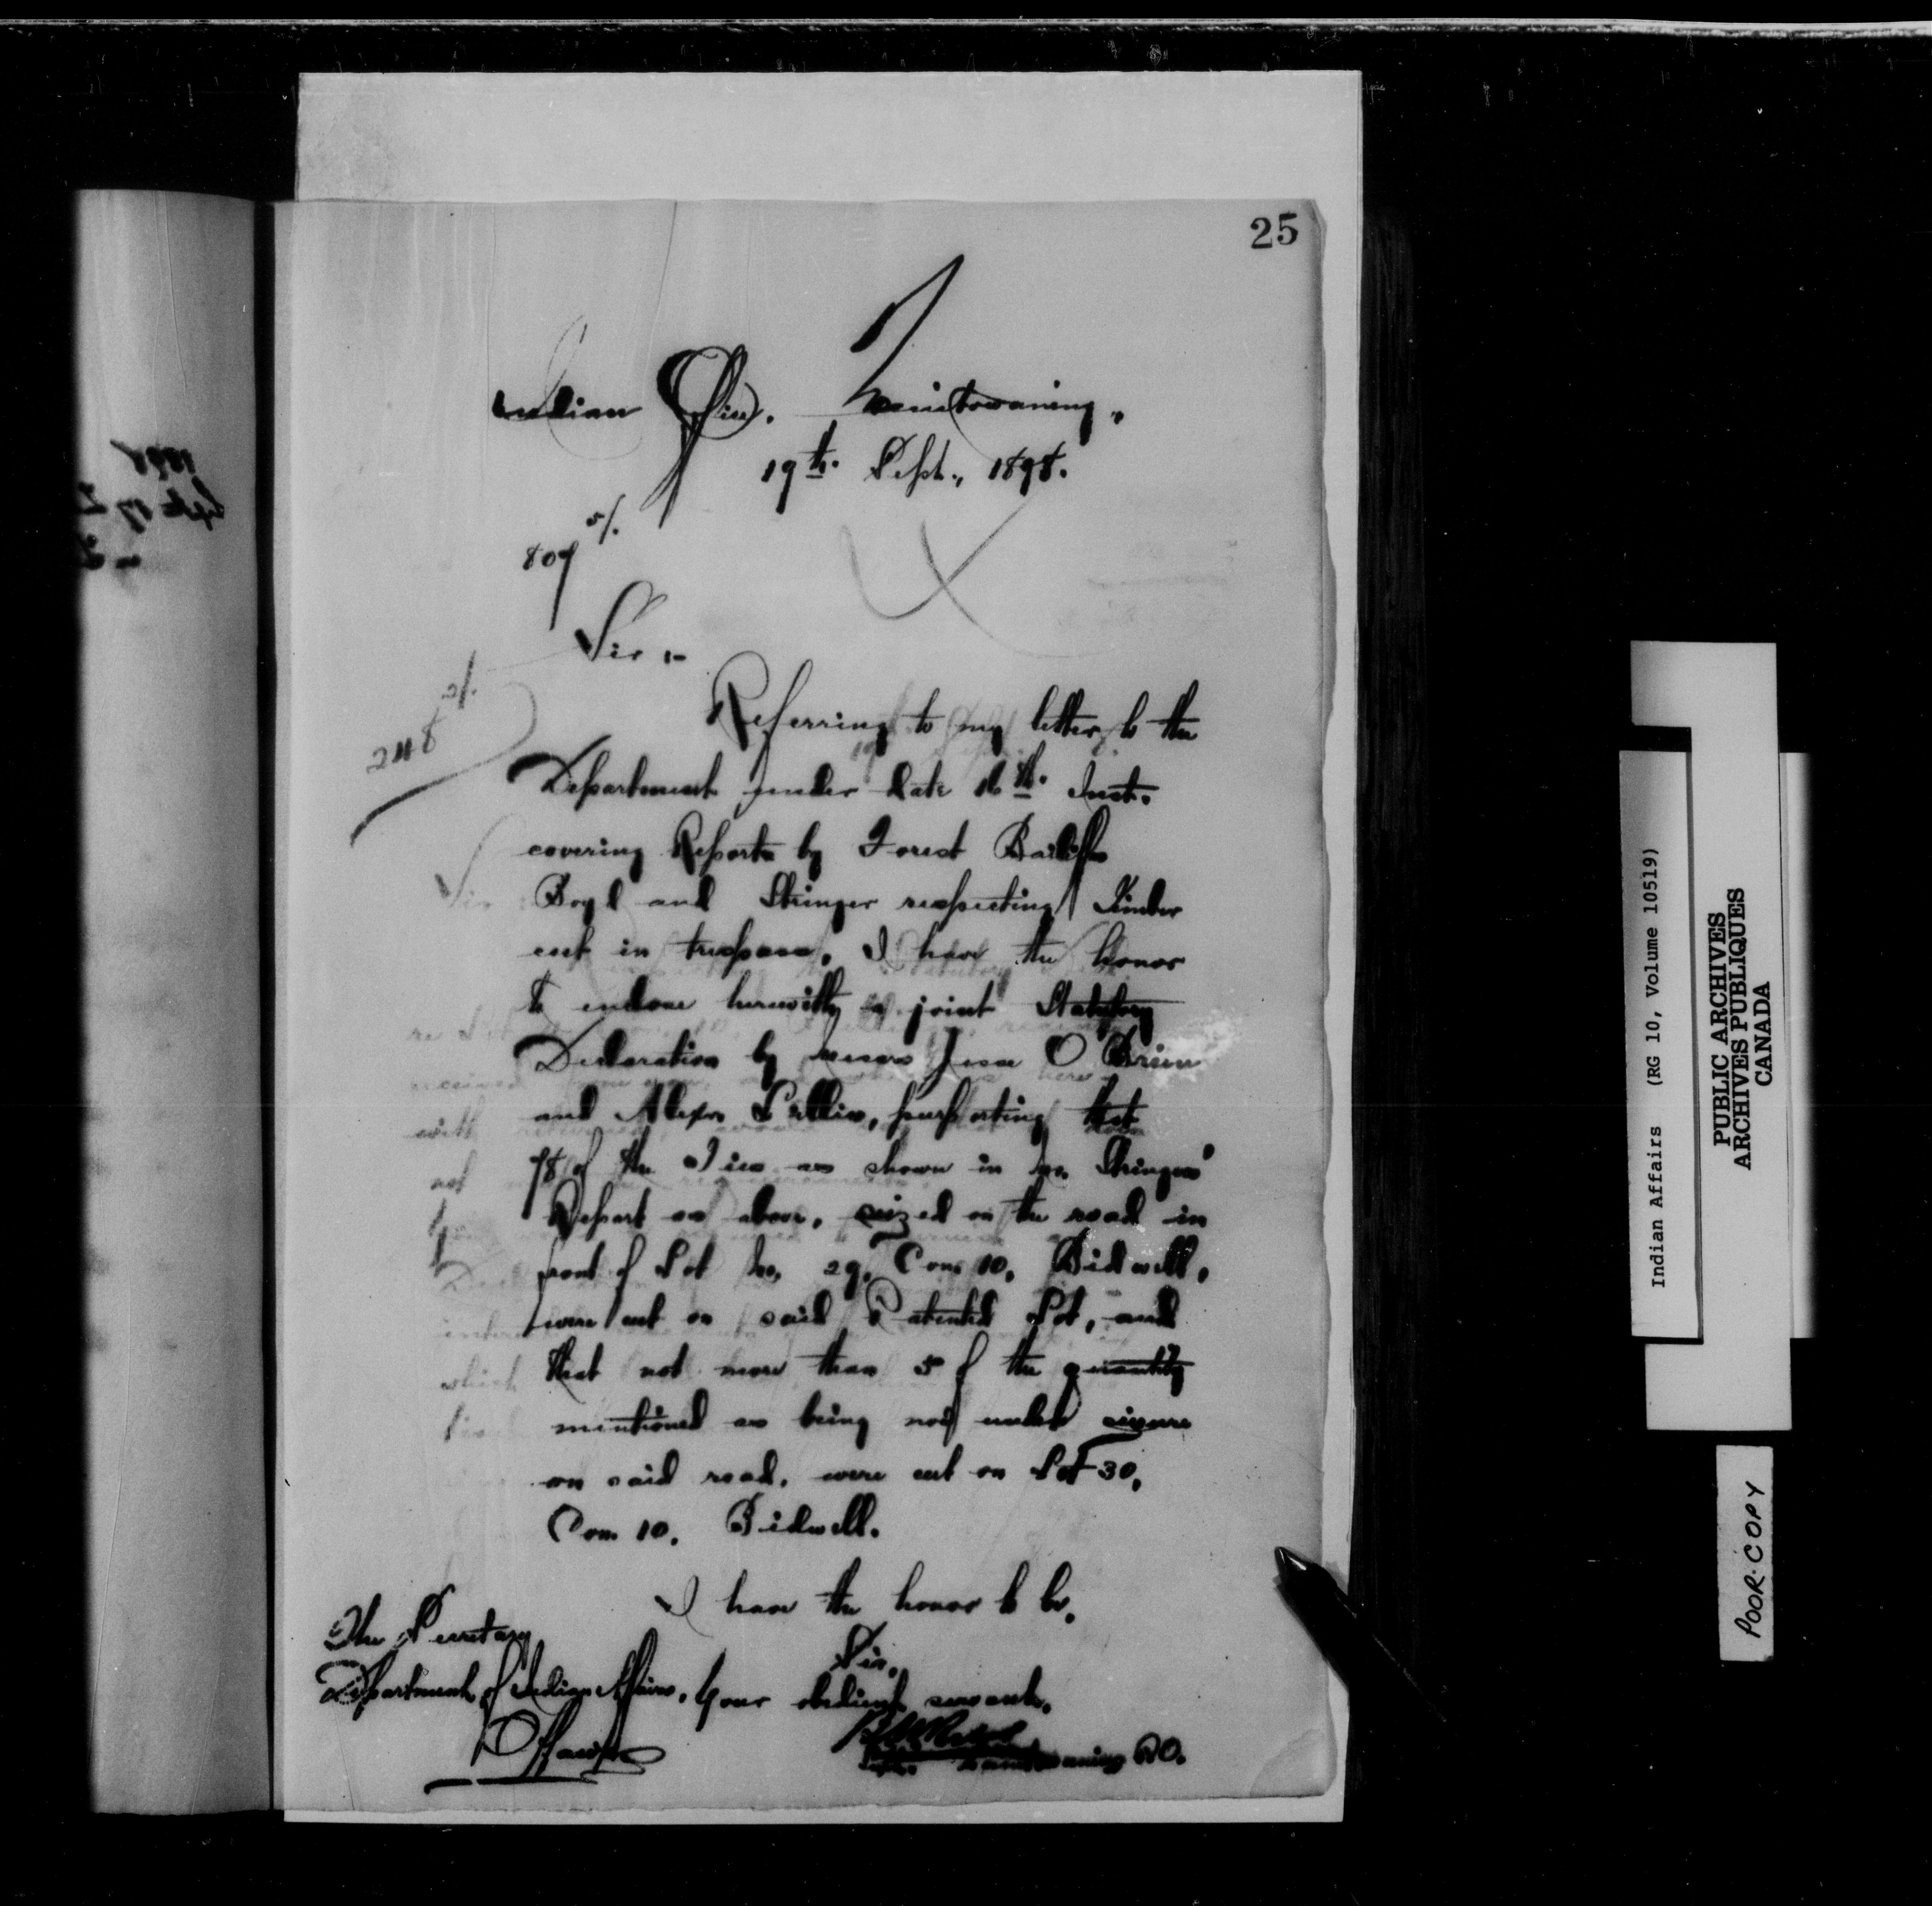 25
Indian Office. Manitowaning,
19th. Sept., 1898.
Sir :-
248
Referring to my letter to the
Department under date 16th. Inst.
covering Reports by Forest Bailiffs
Boyd and Stringer respecting Timber
cut in trespass, I have the honor
to enclose herewith a joint Statutory
Declaration by Messrs Jesse O'Brien
and purporting that
78 of the Ties as shown in Mr. Stringer's
Report as above, seized on the road in
front of Lot No. 29, Con. 10, Bidwell,
were cut on said Patented Lot, and
that not more than 50 of the quantity
mentioned as being now under seizure
on said road, were cut on Lot 30,
Con. 10, Bidwell.
I have the honor to be,
Sir,
Your obedient servant,
Manitowaning
The Secretary
Department of Indian Affairs,
Ottawa
Indian Affairs (RG 10, Volume 10519)
PUBLIC ARCHIVES
ARCHIVES PUBLIQUES
CANADA
POOR COPY